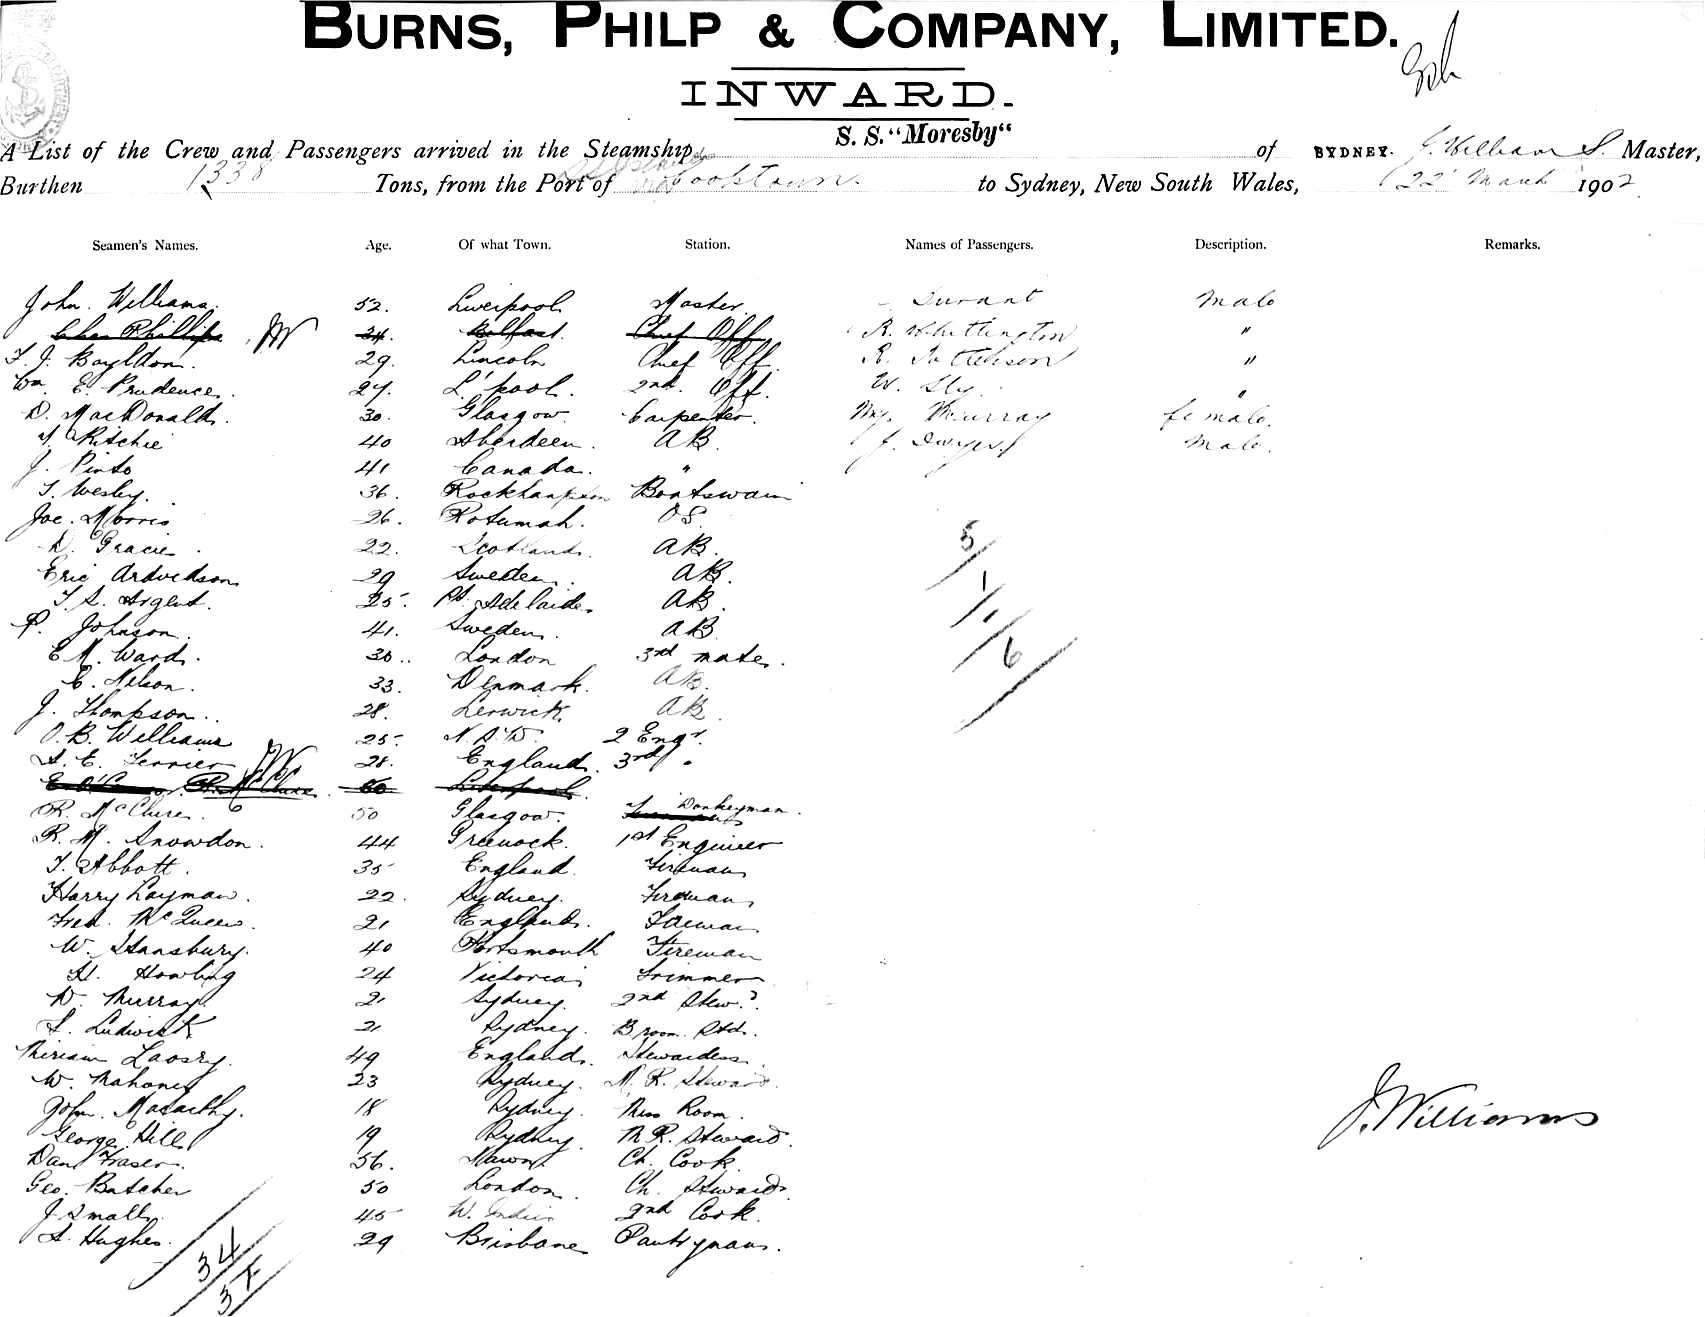 BURNS, PHILP & COMPANY, LIMITED.
INWARD.
A List of the Crew and Passengers arrived in the Steamship S. S. "Moresby" of SYDNEY. J. Williams. Master,
Burthen 1338 Tons, from the Port of Cooktown. to Sydney, New South Wales, 22 March 1902
Seamen's Names. Age. Of what Town. Station. Names of Passengers. Description. Remarks.
John. Williams. 52. Liverpool Master. Durant Male
Chas Phillips 34. Belfast. Chief Off R. Whittington "
T. J. Bayldon. 29. Lincoln Chief Off. R. "
Wm. E. Prudence. 27. L'pool. 2nd. Off. W. Sly. "
D. MacDonald. 30. Glasgow. Carpenter. Murray female.
Ritchie 40 Aberdeen. AB. J. Dwyer. Male.
J. Pinto 41 Canada. "
T. Wesley. 36. Rockhampton Boatswain
Joe. Morris 26. Rotumah. OS.
D. Gracie. 22. Scotland. AB.
Eric Ardvedson 29 Sweden. AB.
T. S. Argent. 25. Pt. Adelaide. AB.
P. Johnson. 41. Sweden. AB
E M. Ward. 30.. London 3rd mate.
C. Nelson. 33. Denmark. AB.
J. Thompson.. 28. Lerwick. AB.
O. B. Williams 25. N.S.W. 2 Engr.
28. England. 3rd "
60 Liverpool.
R. McClure. 50 Glasgow. Donkeyman.
R. M. Snowdon. 44 Greenock. 1st Engineer
T. Abbott. 35 England. Fireman
Harry Layman. 22. Sydney. Fireman
Fred. McQueen. 21 England. Fireman
W. Stansbury. 40 Portsmouth Fireman
H. Howling 24 Victoria Trimmer
D. Murray. 21 Sydney. 2nd Stew.
S. Ludwick 21 Sydney. B room. Std.
Miriam 49 England. Stewardess
W. Mahoney 23 Sydney. M. R. Steward.
John. Macarthy. 18 Sydney. Mess Room.
George Hill 19 Sydney. M R. Steward.
Dan Fraser. 56. Ch. Cook.
Geo. Butcher 50 London. Ch. Steward.
J. Small. 45 W. Indies 2nd Cook.
A. Hughes. 29 Brisbane Pantryman.
5/
1/1
/6
J. Williams
34/